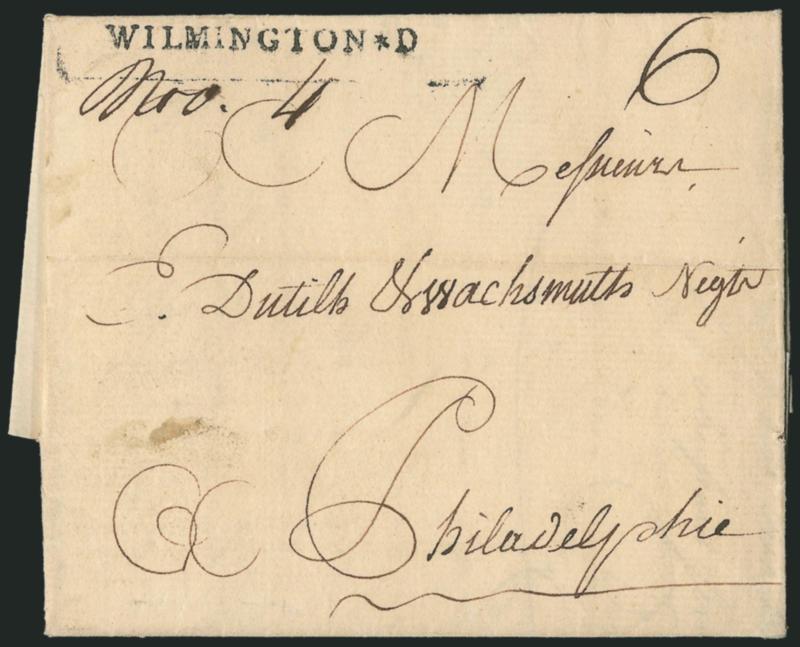 WILMINGTON*D
Nov. 4 6
Messieurs
E. Dutilh & Wachsmuth Negts
Philadelphie